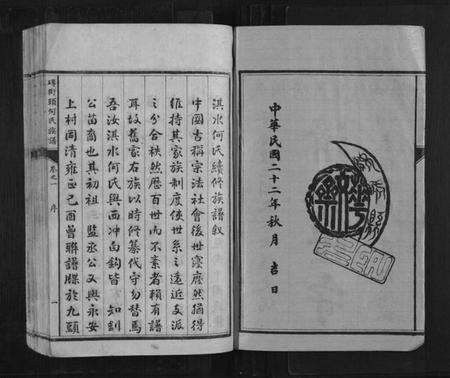 中華民國二十二年秋月 吉日
淇水何氏續修族譜敘
中國古稱宗法社會後世寖廢然猶得
維持其家族制度使世系之遠近支派
之分合秩然歷百世而不紊者賴有譜
耳故舊家右族以時修纂代守勿替焉
吾汝淇水何氏與西冲白鈎皆 知釗
公苗裔也其初祖 監丞公又與永安
上村同清雍正己酉曾聯譜牒於九頭
街頭何氏族譜 卷之一 序 一